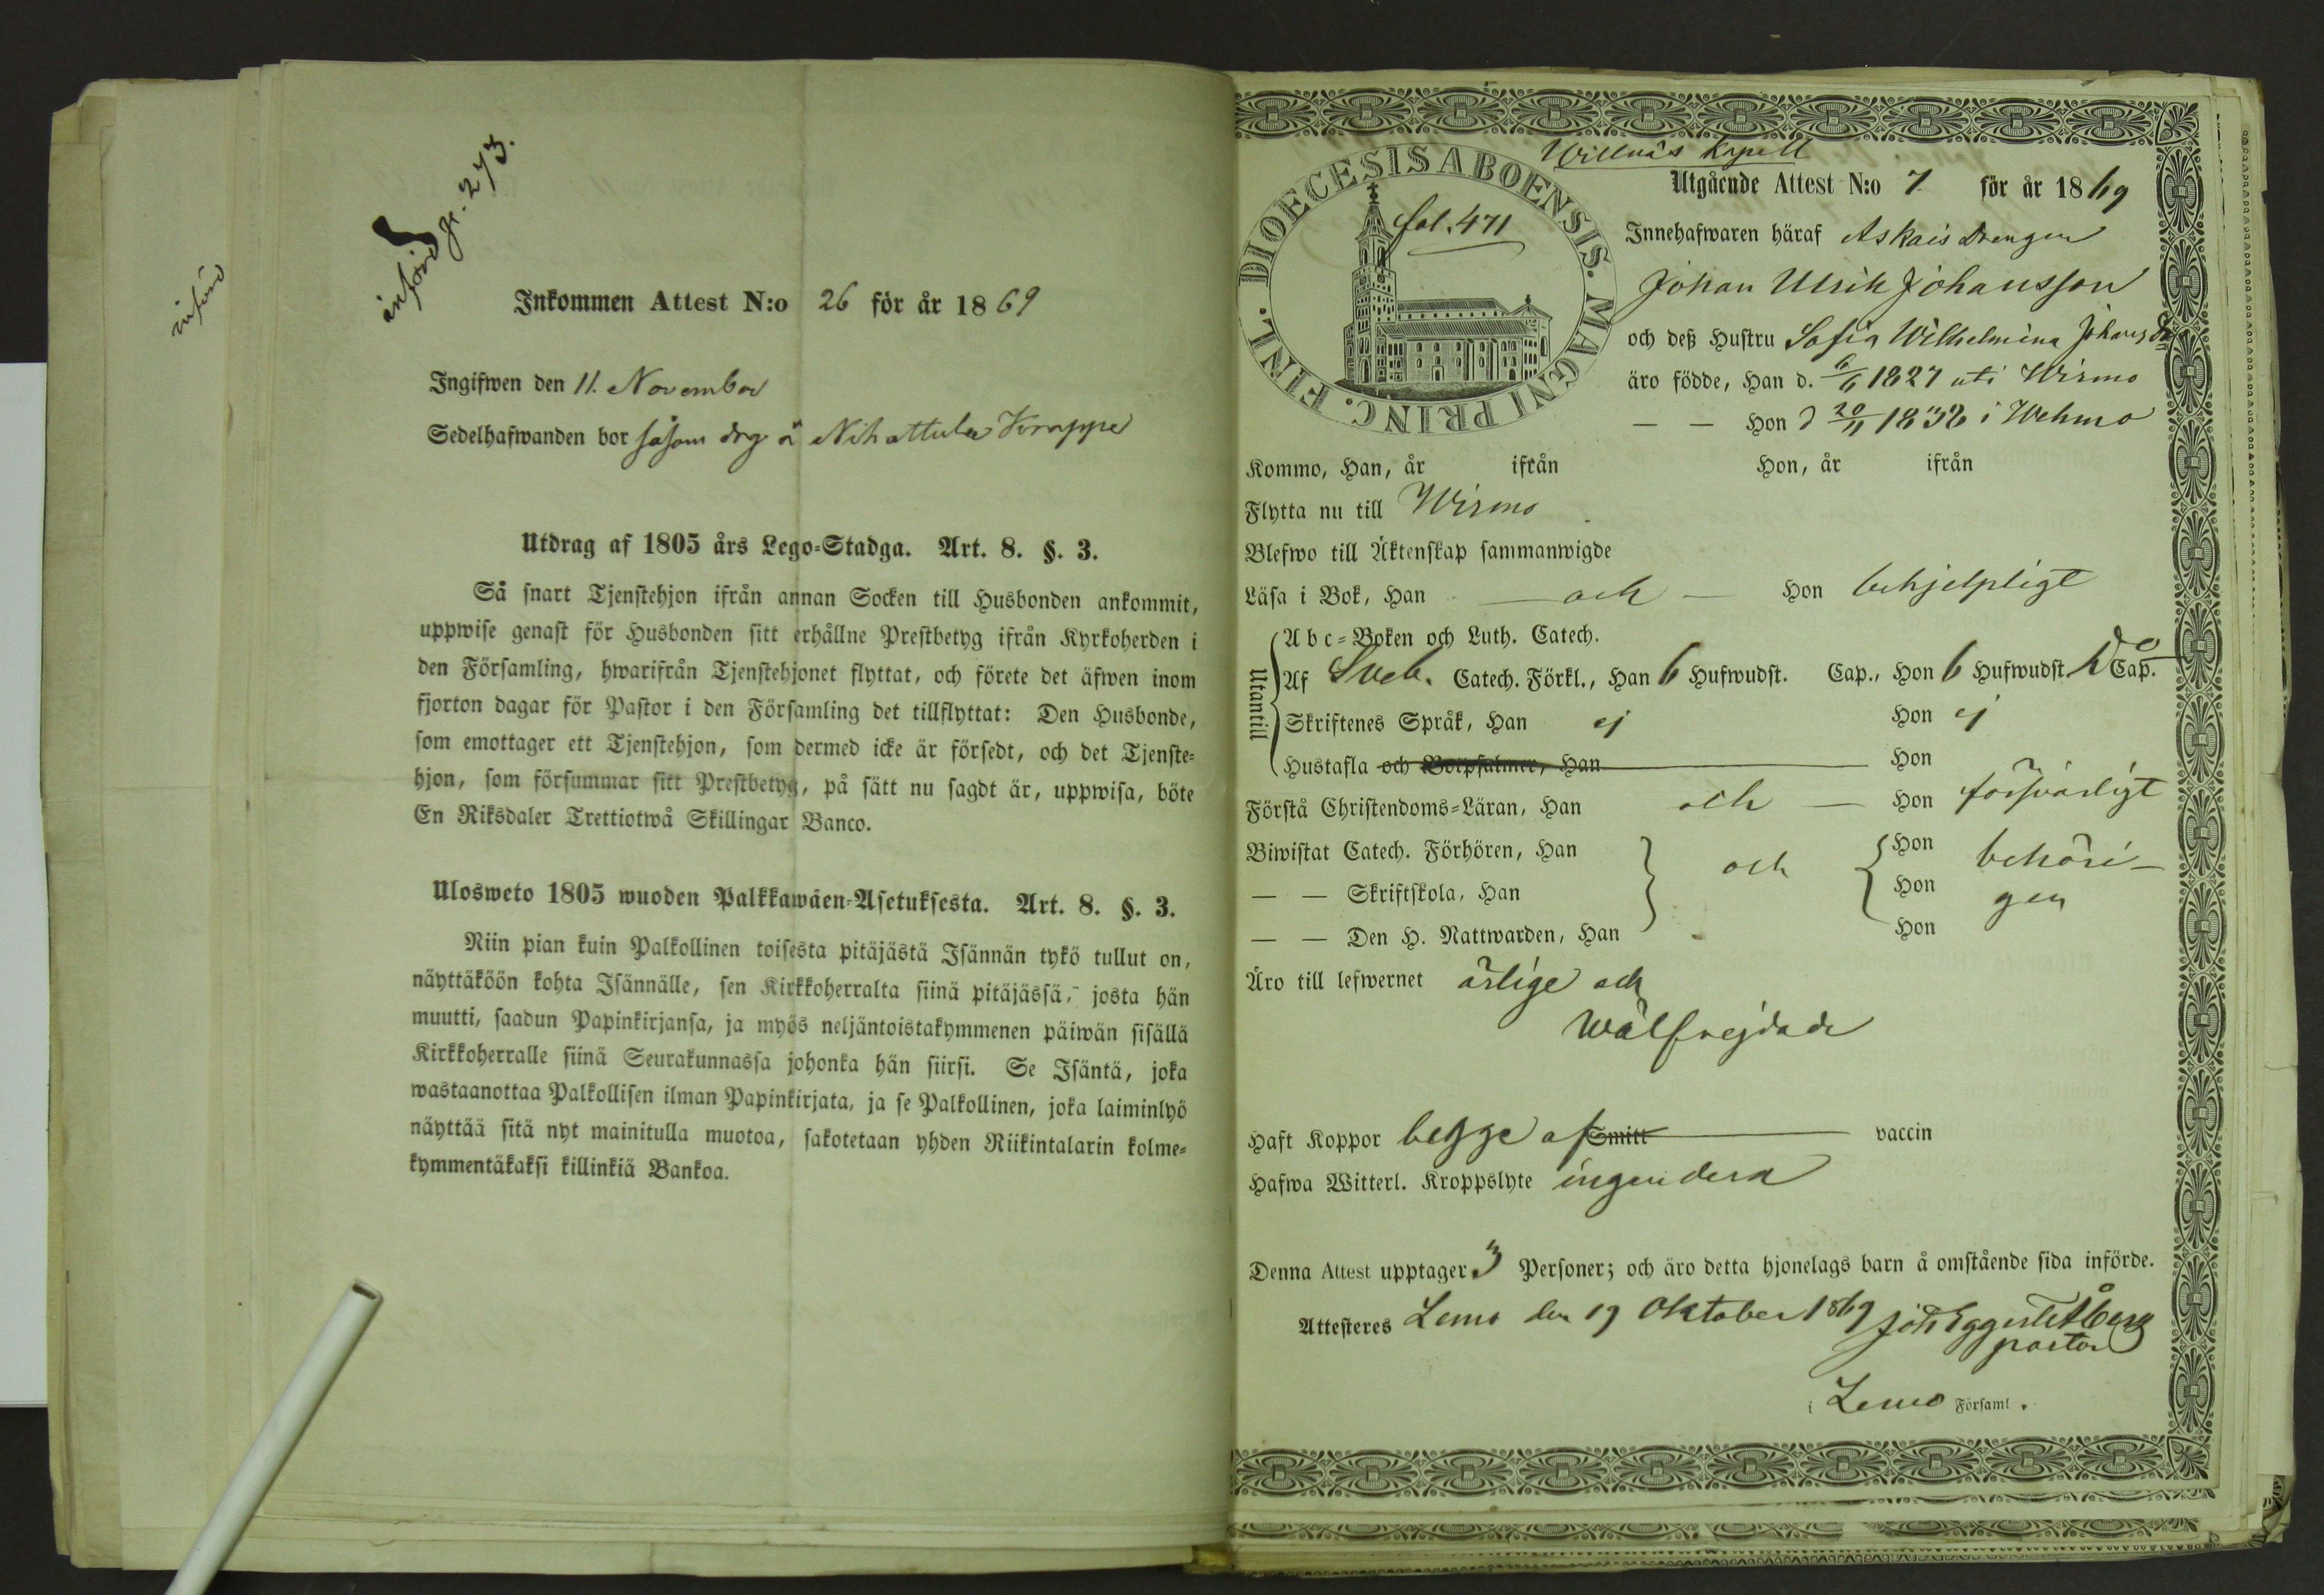 införd
införd p. 273.
Inkommen Attest N:o 26 för år 1869
Ingifwen den 11. November
Sedelhafwanden bor såsom drg å Nihattula Krappe
Utdrag af 1805 års Lego-Stadga. Art. 8. §. 3.
Så snart Tjenstehjon ifrån annan Socken till Husbonden ankommit,
uppwise genast för Husbonden sitt erhållne Prestbetyg ifrån Kyrkoherden i
den Församling, hwarifrån Tjenstehjonet flyttat, och förete det äfwen inom
fjorton dagar för Pastor i den Församling det tillflyttat: Den Husbonde,
som emottager ett Tjenstehjon, som dermed icke är försedt, och det Tjenste-
hjon, som försummar sitt Prestbetyg, på sätt nu sagdt är, uppwisa, böte
En Riksdaler Trettiotwå Skillingar Banco.
Ulosweto 1805 wuoden Palkkawäen-Asetuksesta. Art. 8. §. 3.
Niin pian kuin Palkollinen toisesta pitäjästä Isännän tykö tullut on,
näyttäköön kohta Isännälle, sen Kirkkoherralta siinä pitäjässä, josta hän
muutti, saadun Papinkirjansa, ja myös neljäntoistakymmenen päiwän sisällä
Kirkkoherralle siinä Seurakunnassa johonka hän siirsi. Se Isäntä, joka
wastaanottaa Palkollisen ilman Papinkirjata, ja se Palkollinen, joka laiminlyö
näyttää sitä nyt mainitulla muotoa, sakotetaan yhden Riikintalarin kolme-
kymmentäkaksi killinkiä Bankoa.
DIOECESIS ABOENSIS. MAGNI PRINC. FINL.
fol. 471
Willnäs Kapell
Utgående Attest N:o 7 för år 1869
Innehafwaren häraf Askais Drengen
Johan Ulrik Johansson
och deß Hustru Sofia Wilhelmina Johansdr
äro födde, Han d. 6/6 1827 uti Wirmo
— — Hon d 20/11 1836 i Wehmo
Kommo, Han, år ifrån Hon, år ifrån
Flytta nu till Wirmo
Blefwo till Äktenskap sammanwigde
Läsa i Bok, Han — och — Hon behjelpligt
Utantill
Abc-Boken och Luth. Catech.
Af Sveb. Catech. Förkl., Han 6 Hufwudst. Cap., Hon 6 Hufwudst. Cap.
Skriftenes Språk, Han ej Hon ej
Hustafla och Botpsalmer, Han Hon
Förstå Christendoms-Läran, Han och — Hon försvarligt
Biwistat Catech. Förhören, Han och Hon behöri-
— — Skriftskola, Han Hon gen
— — Den H. Nattwarden, Han Hon
Äro till lefwernet ärlige och
wälfrejdade
Haft Koppor begge af Smitt vaccin
Hafwa Witterl. Kroppslyte ingendera
Denna Attest upptager 3 Personer; och äro detta hjonelags barn å omstående sida införde.
Attesteres Lemo den 19 Oktober 1869 Joh Eggert Åberg
pastor
i Lemo Församl.